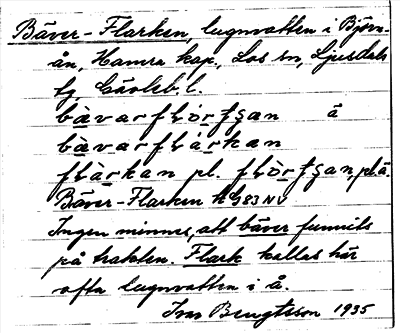 Bäver-Flarken, lugnvatten i Björn-
ån, Hamra kap, Los sn, Ljusdals
tg Gävleb. l.
bävarflórtşan å
bävarflárkan
flàrkan pl. flòrtşan pl å
Bäver-Flarken G83NV
Ingen minnes, att bäver funnits
på trakten. Flark kallas här
ofta lugnvatten i å.
Ivar Bengtsson 1935